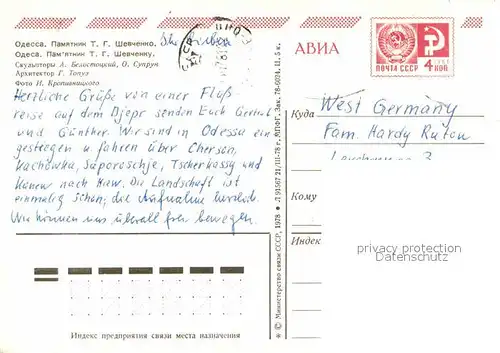 Одесса. Памятник Т. Г. Шевченко.
Одеса. Пам'ятник Т. Г. Шевченку.
Скульпторы А. Белостоцкий, О. Супрун
Архитектор Г. Топуз
Фото И. Кропивницкого
Herzliche Grüße von einer Fluß
reise auf dem Djepr senden Euch Gertrud
und Günther. Wir sind in Odessa ein
gestiegen u. fahren über Cherson,
Kachowka, Saporoschje, Tscherkassy und
Kanew nach Kiew. Die Landschaft ist
einmalig schön; die Aufnahme herzlich.
Wir können uns überall frei bewegen.
Индекс предприятия связи места назначения
© Министерство связи СССР, 1978 • Л 91567 21/III-78 г. МПФГ. Зак. 78-6024, II, 5 к.
АВИА
ПОЧТА СССР
4 КОП
Куда
West Germany
Fam. Hardy
Кому
Индекс
privacy protection
Datenschutz